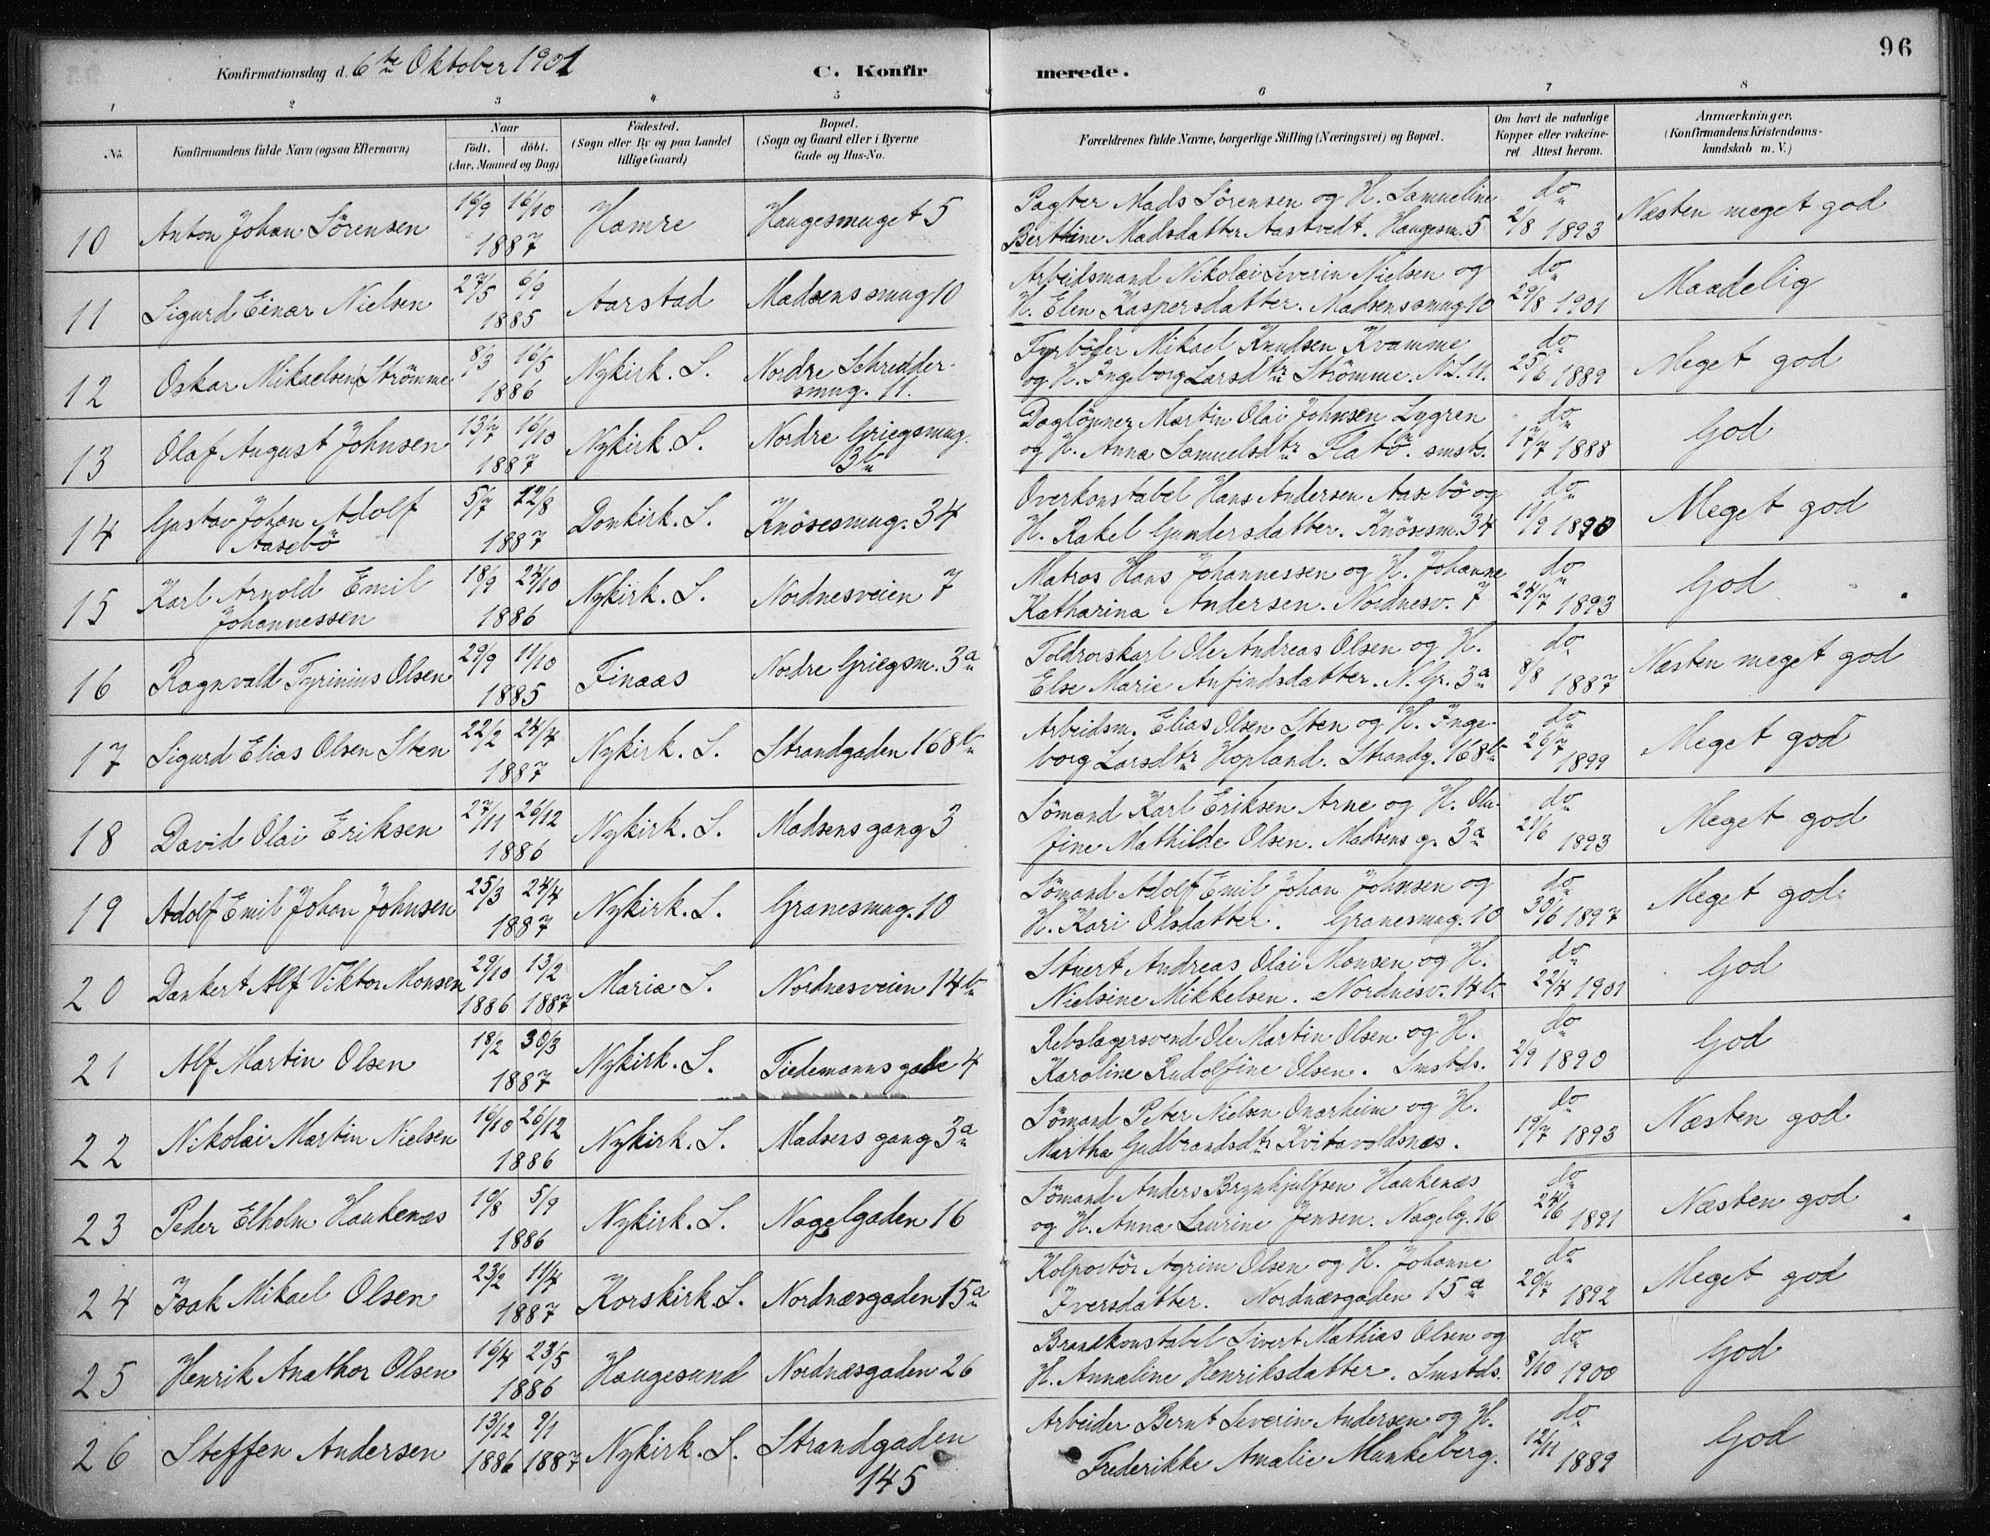 96
Konfirmationsdag d. 6te Oktober 1901
C. Konfirmerede.
1 2 3 4 5 6 7 8
No.
Konfirmandens fulde Navn (ogsaa Efternavn)
Naar
Födt. döbt.
(Aar, Maaned og Dag)
Födested.
(Sogn eller By og paa Landet
tillige Gaard)
Bopæl.
(Sogn og Gaard eller i Byerne
Gade og Hus-No.
Forældrenes fulde Navne, borgerlige Stilling (Næringsvei) og Bopæl.
Om havt de naturlige
Kopper eller vakcine-
ret. Attest herom.
Anmærkninger.
(Konfirmandens Kristendoms-
kundskab m. V.)
10 Anton Johan Sörensen 16/9 16/10 1887 Hamre Haugesmuget 5
Pagter Mads Sörensen og H. Samueline do
Berthine Madsdatter Aastvedt. Haugesm. 5 2/8 1893 Næsten meget god
11 Sigurd Einar Nielsen 27/5 6/9 1885 Aarstad Madsenssmug 10
Arbeidsmand Nikolai Severin Nielsen og do
H. Elen Kaspersdatter. Madsenssmug 10 29/8 1901 Maadelig
12 Oskar Mikaelsen Strömme 8/3 16/5 1886 Nykirk. S. Nordre Schrødder-
smug. 11.
Fyrböder Mikael Knudsen Kvamme do
og H. Ingeborg Larsdtr Strömme. N.S. 11. 25/6 1889 Meget god
13 Olaf August Johnsen 13/7 16/10 1887 Nykirk. S. Nordre Griegsmug.
3b
Daglönner Martin Olai Johnsen Lygren do
og H. Anna Samuelsdtr Flatö. smsts. 17/7 1888 God
14 Gustav Johan Adolf
Aasebö 5/7 12/8 1887 Domkirk. S. Knösesmug. 34
Overkonstabel Hans Andersen Aasebö og do
H. Rakel Gundersdatter. Knösesm. 34 11/9 1890 Meget god
15 Karl Arnold Emil
Johannessen 18/9 24/10 1886 Nykirk. S. Nordnesveien 7
Matros Hans Johannessen og H. Johanne do
Katharina Andersen. Nordnesv. 7 24/7 1893 God
16 Ragnvald Tyrinius Olsen 29/9 11/10 1885 Finaas Nordre Griegsm. 3a
Toldrorskarl Ole Andreas Olsen og H. do
Else Marie Anfindsdatter. N. Gr. 3a 8/8 1887 Næsten meget god
17 Sigurd Elias Olsen Sten 22/2 24/4 1887 Nykirk. S. Strandgaden 168b
Arbeidsm. Elias Olsen Sten og H. Inge- do
borg Larsdtr Hopland. Strandg. 168b 26/7 1899 Meget god
18 David Olai Eriksen 27/11 26/12 1886 Nykirk. S. Madsens gang 3
Sömand Karl Eriksen Arne og H. Olu- do
fine Mathilde Olsen. Madsens g. 3a 21/6 1893 Meget god
19 Adolf Emil Johan Johnsen 25/3 24/4 1887 Nykirk. S. Granesmug. 10
Sömand Adolf Emil Johan Johnsen og do
H. Kari Olsdatter. Granesmug. 10 30/6 1897 Meget god.
20 Dankert Alf Viktor Monsen 29/10 1886 13/2 1887 Maria S. Nordnesveien 14b
Stuert Andreas Olai Monsen og H. do
Nielsine Mikkelsen. Nordnesv. 14b. 22/4 1901 God
21 Alf Martin Olsen 18/2 30/3 1887 Nykirk. S. Tiedemanns gade 4
Rebslagersvend Ole Martin Olsen og H. do
Karoline Rudolfine Olsen. Smstds. 2/9 1890 God
22 Nikolai Martin Nielsen 16/10 26/12 1886 Nykirk. S. Madsens gang 3a
Sömand Peter Nielsen Onarheim og H. do
Martha Gudbrandsdtr Kvitavoldsnæs. 19/7 1893 Næsten god
23 Peder Elholm Haukenæs 19/8 5/9 1886 Nykirk. S. Nagelgaden 16
Sömand Anders Brynhjulfsen Haukenæs do
og H. Anna Laurine Jensen. Nagelg. 16 24/6 1891 Næsten god
24 Isak Mikael Olsen 23/2 11/4 1887 Korskirk S. Nordnæsgaden 15a
Kolportör Agrim Olsen og H. Johanne do
Iversdatter. Nordnæsgaden 15a 20/7 1892 Meget god
25 Henrik Anathor Olsen 16/4 23/5 1886 Haugesund Nordnæsgaden 26
Brandkonstabel Sivert Mathias Olsen og do
H. Annaline Henriksdatter. Smstds. 8/10 1900 God
26 Steffen Andersen 13/12 1886 9/1 1887 Nykirk. S. Strandgaden
145
Arbeider Bernt Severin Andersen og H. do
Frederikke Amalie Munkeberg. 12/11 1889 God